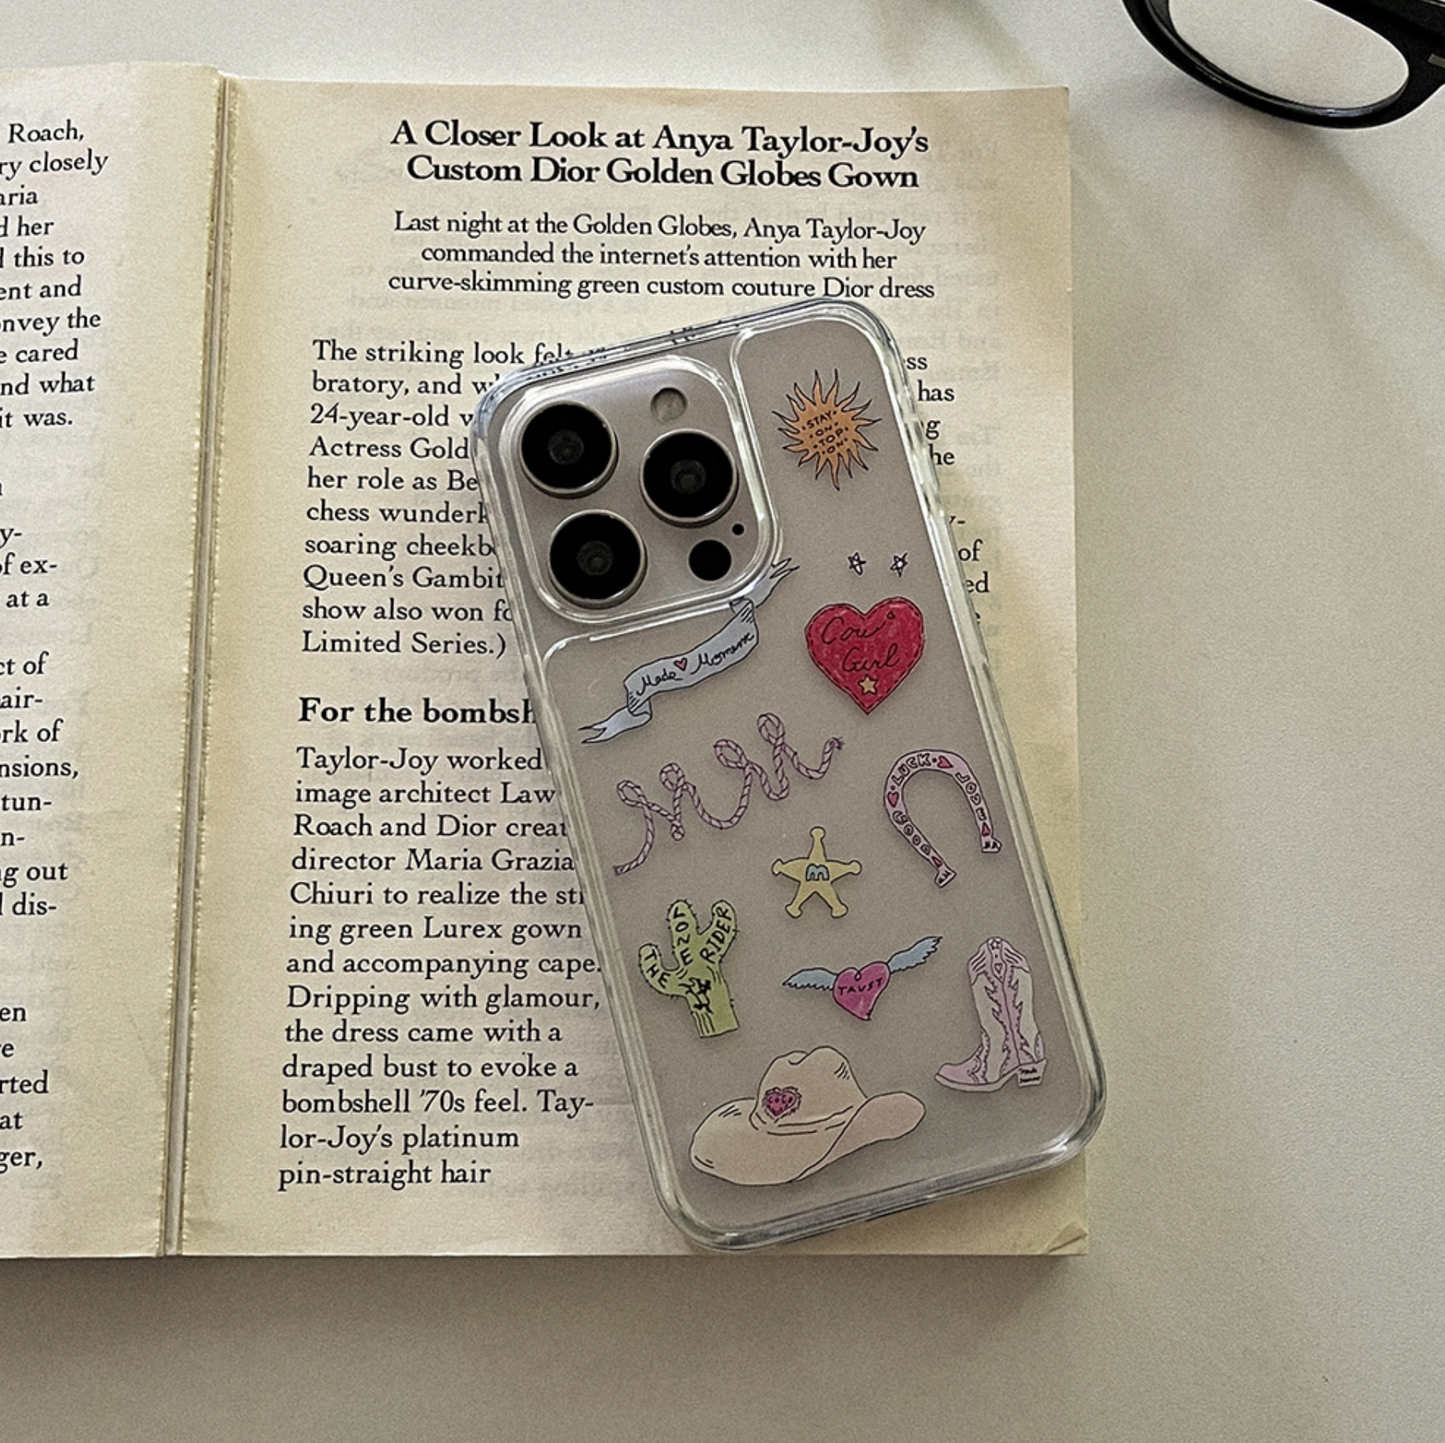 Roach,
ry closely
aria
d her
l this to
ent and
onvey the
e cared
nd what
it was.
y-
of ex-
at a
ct of
air-
rk of
nsions,
tun-
n-
ng out
l dis-
en
re
rted
at
ger,
A Closer Look at Anya Taylor-Joy's
Custom Dior Golden Globes Gown
Last night at the Golden Globes, Anya Taylor-Joy
commanded the internet's attention with her
curve-skimming green custom couture Dior dress
The striking look felt
bratory, and w
24-year-old w
Actress Gold
her role as Be
chess wunderk
soaring cheekb
Queen's Gambit
show also won fo
Limited Series.)
ss
has
g
he
y-
of
ed
For the bombsh
Taylor-Joy worked
image architect Law
Roach and Dior creat
director Maria Grazia
Chiuri to realize the stri
ing green Lurex gown
and accompanying cape.
Dripping with glamour,
the dress came with a
draped bust to evoke a
bombshell '70s feel. Tay-
lor-Joy's platinum
pin-straight hair
STAY
ON
TOP
ON
Made Moment
Cow
Girl
GOOD LUCK
m
THE LONE RIDER
TRUST
COCO